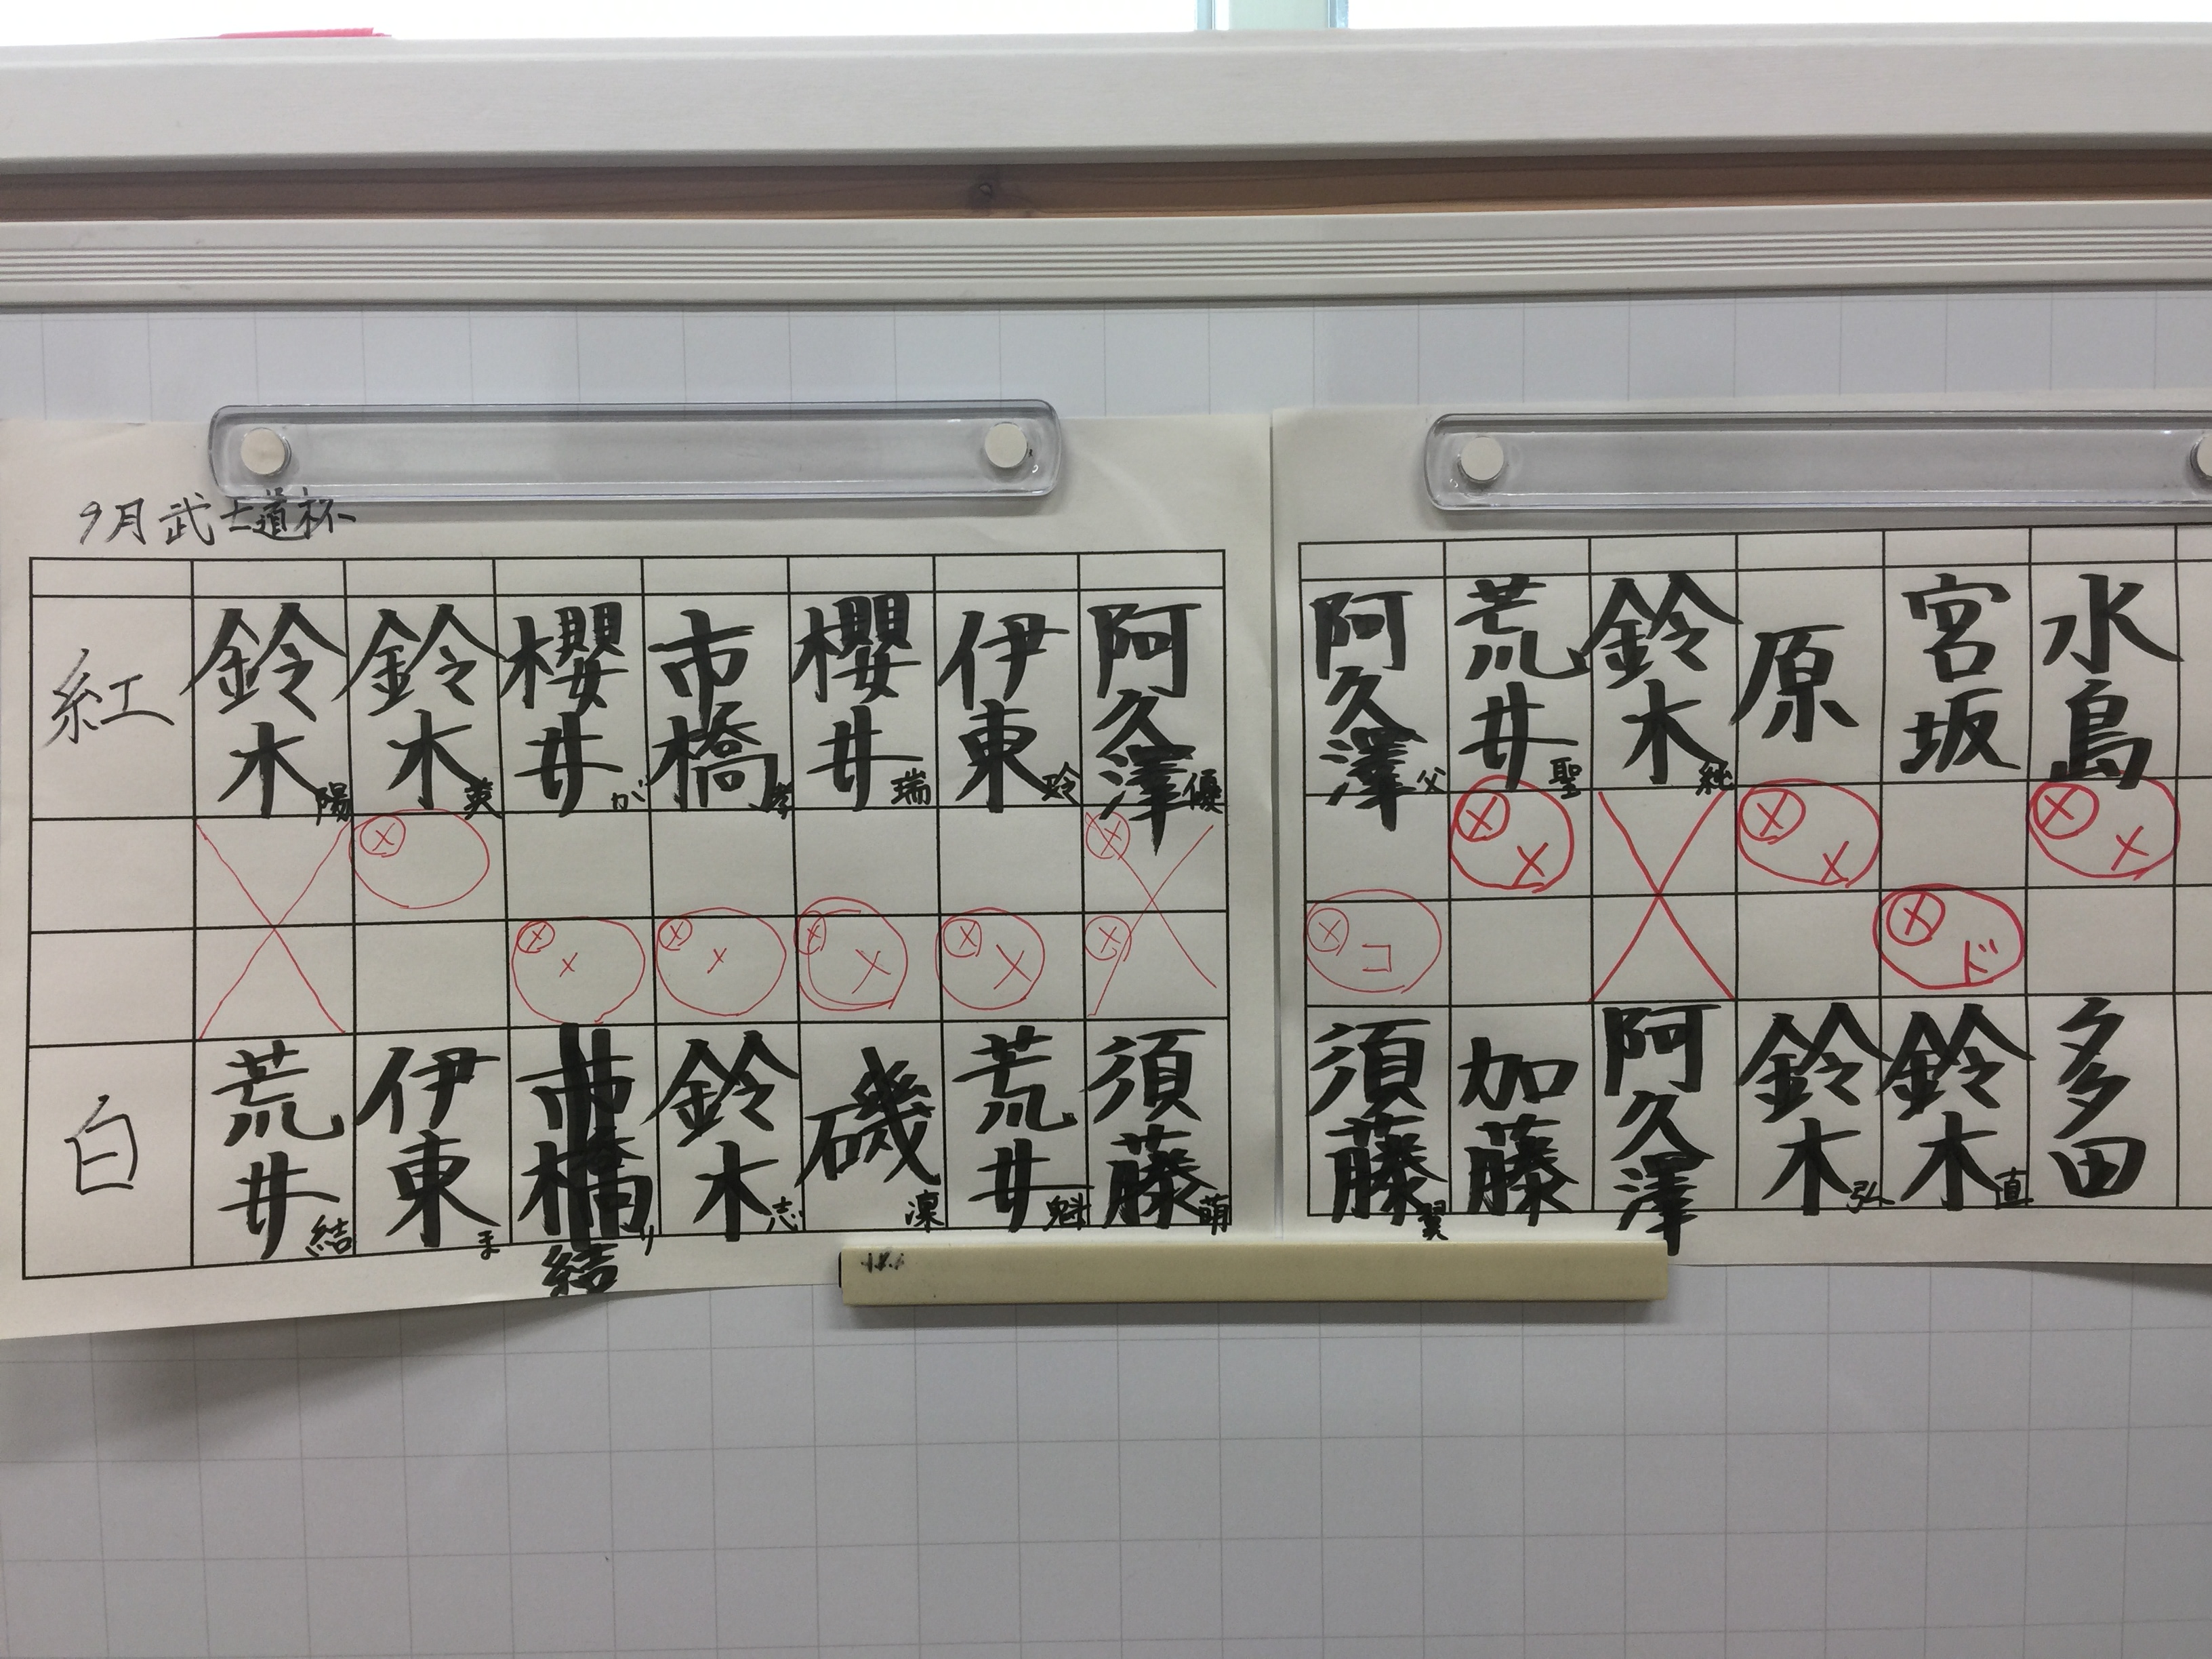 9月武士道杯
紅 鈴木陽 鈴木英 櫻井が 市橋孝 櫻井瑞 伊東玲 阿久澤優 阿久澤父 荒井聖 鈴木純 原 宮坂 水島
X ⊗ ⊗ X ⊗ X ⊗ X ⊗ X
⊗ X ⊗ X ⊗ X ⊗ X ⊗ ⊗ コ ⊗ ド
白 荒井結 伊東ま 市橋り 鈴木志 磯凜 荒井魁 須藤萌 須藤翼 加藤 阿久澤 鈴木弘 鈴木直 多田
結